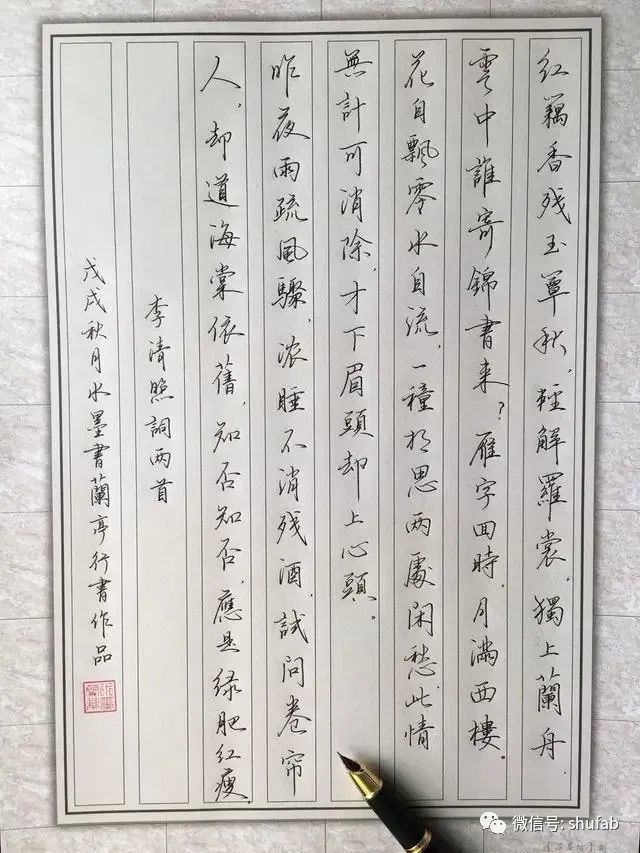 红藕香残玉簟秋，轻解羅裳，獨上蘭舟.
雲中誰寄錦書来？雁字回時，月满西樓.
花自飄零水自流，一種相思两處闲愁.此情
無計可消除，才下眉頭却上心頭。
昨夜雨疏風驟，浓睡不消残酒，試问卷帘
人，却道海棠依舊，知否知否，應是绿肥红瘦.
李清照詞两首
戊戌秋月水墨書蘭亭行書作品
微信号: shufab